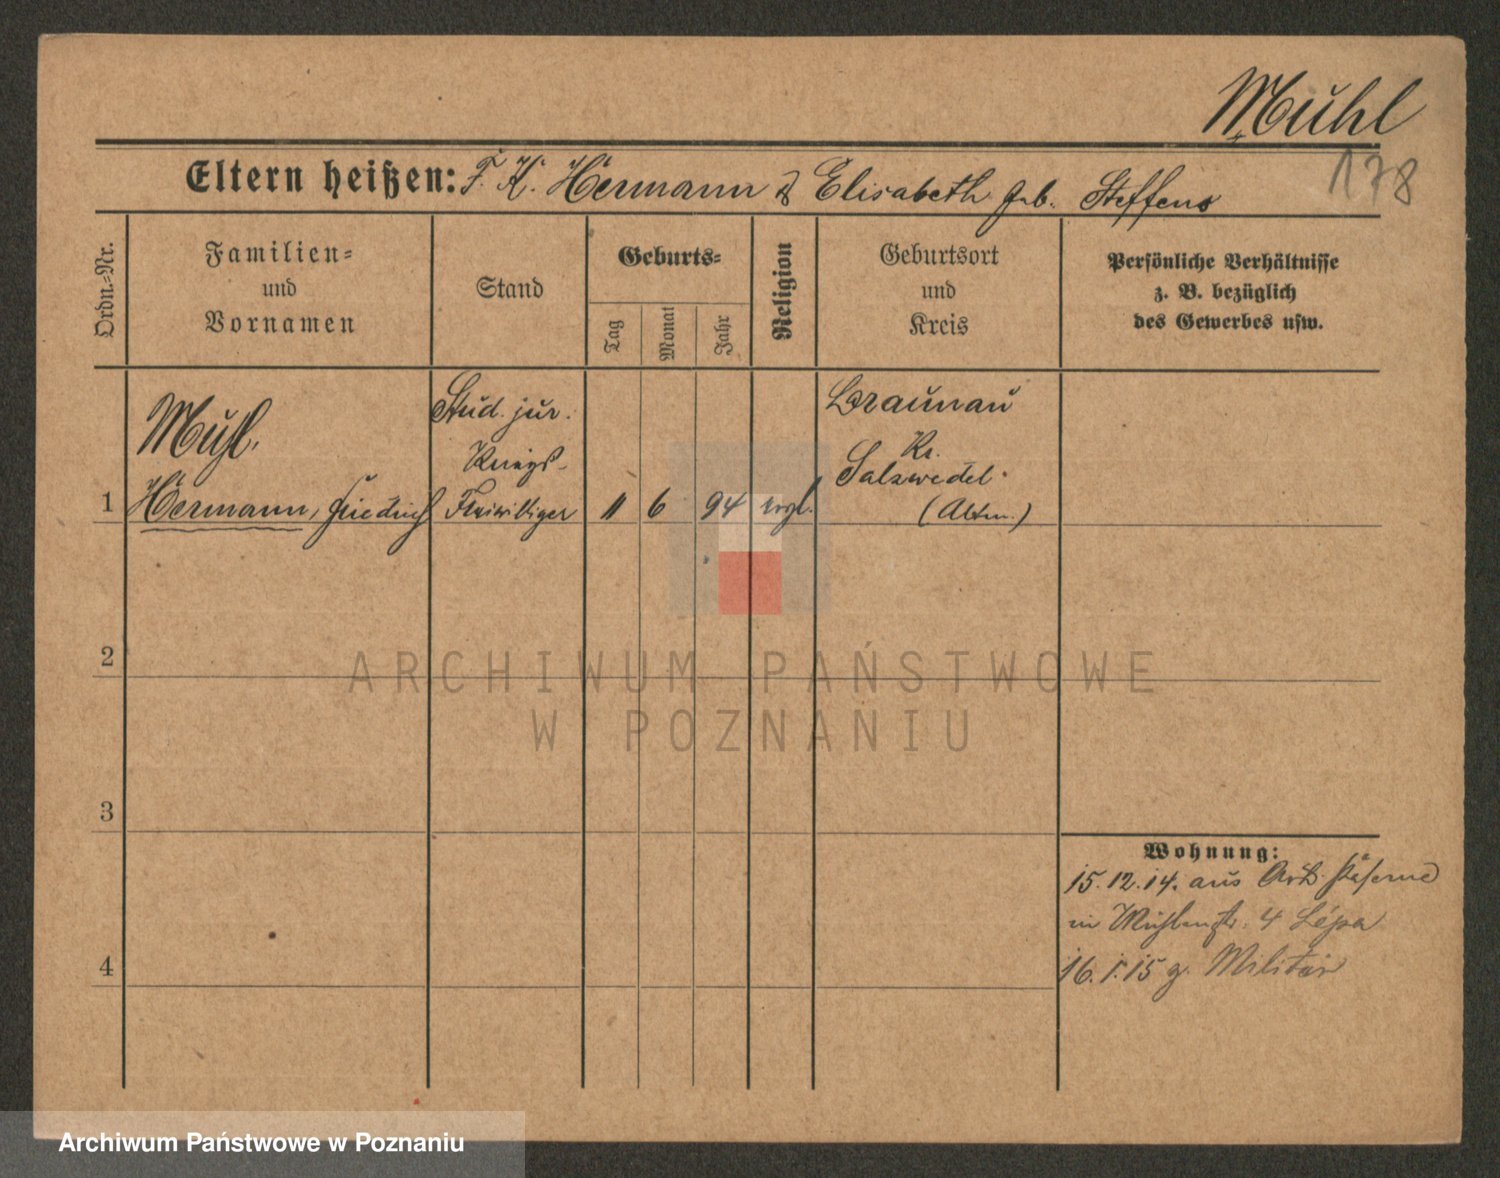 Muhl
178
Eltern heißen: F. K. Hermann & Elisabeth geb. Steffens
Ordn.-Nr.
Familien-
und
Vornamen
Stand
Geburts-
Tag
Monat
Jahr
Religion
Geburtsort
und
Kreis
Persönliche Verhältnisse
z. B. bezüglich
des Gewerbes usw.
Muhl,
Stud. jur.
Braunau
Kriegs-
Kr.
Salzwedel
1 Hermann, Friedrich Freiwilliger 11 6 94 evgl. (Altm.)
2
3
4
Wohnung:
15.12.14. aus Art. Kaserne
in Mühlenstr. 4
16.1.15 z. Militär
ARCHIWUM PAŃSTWOWE
W POZNANIU
Archiwum Państwowe w Poznaniu